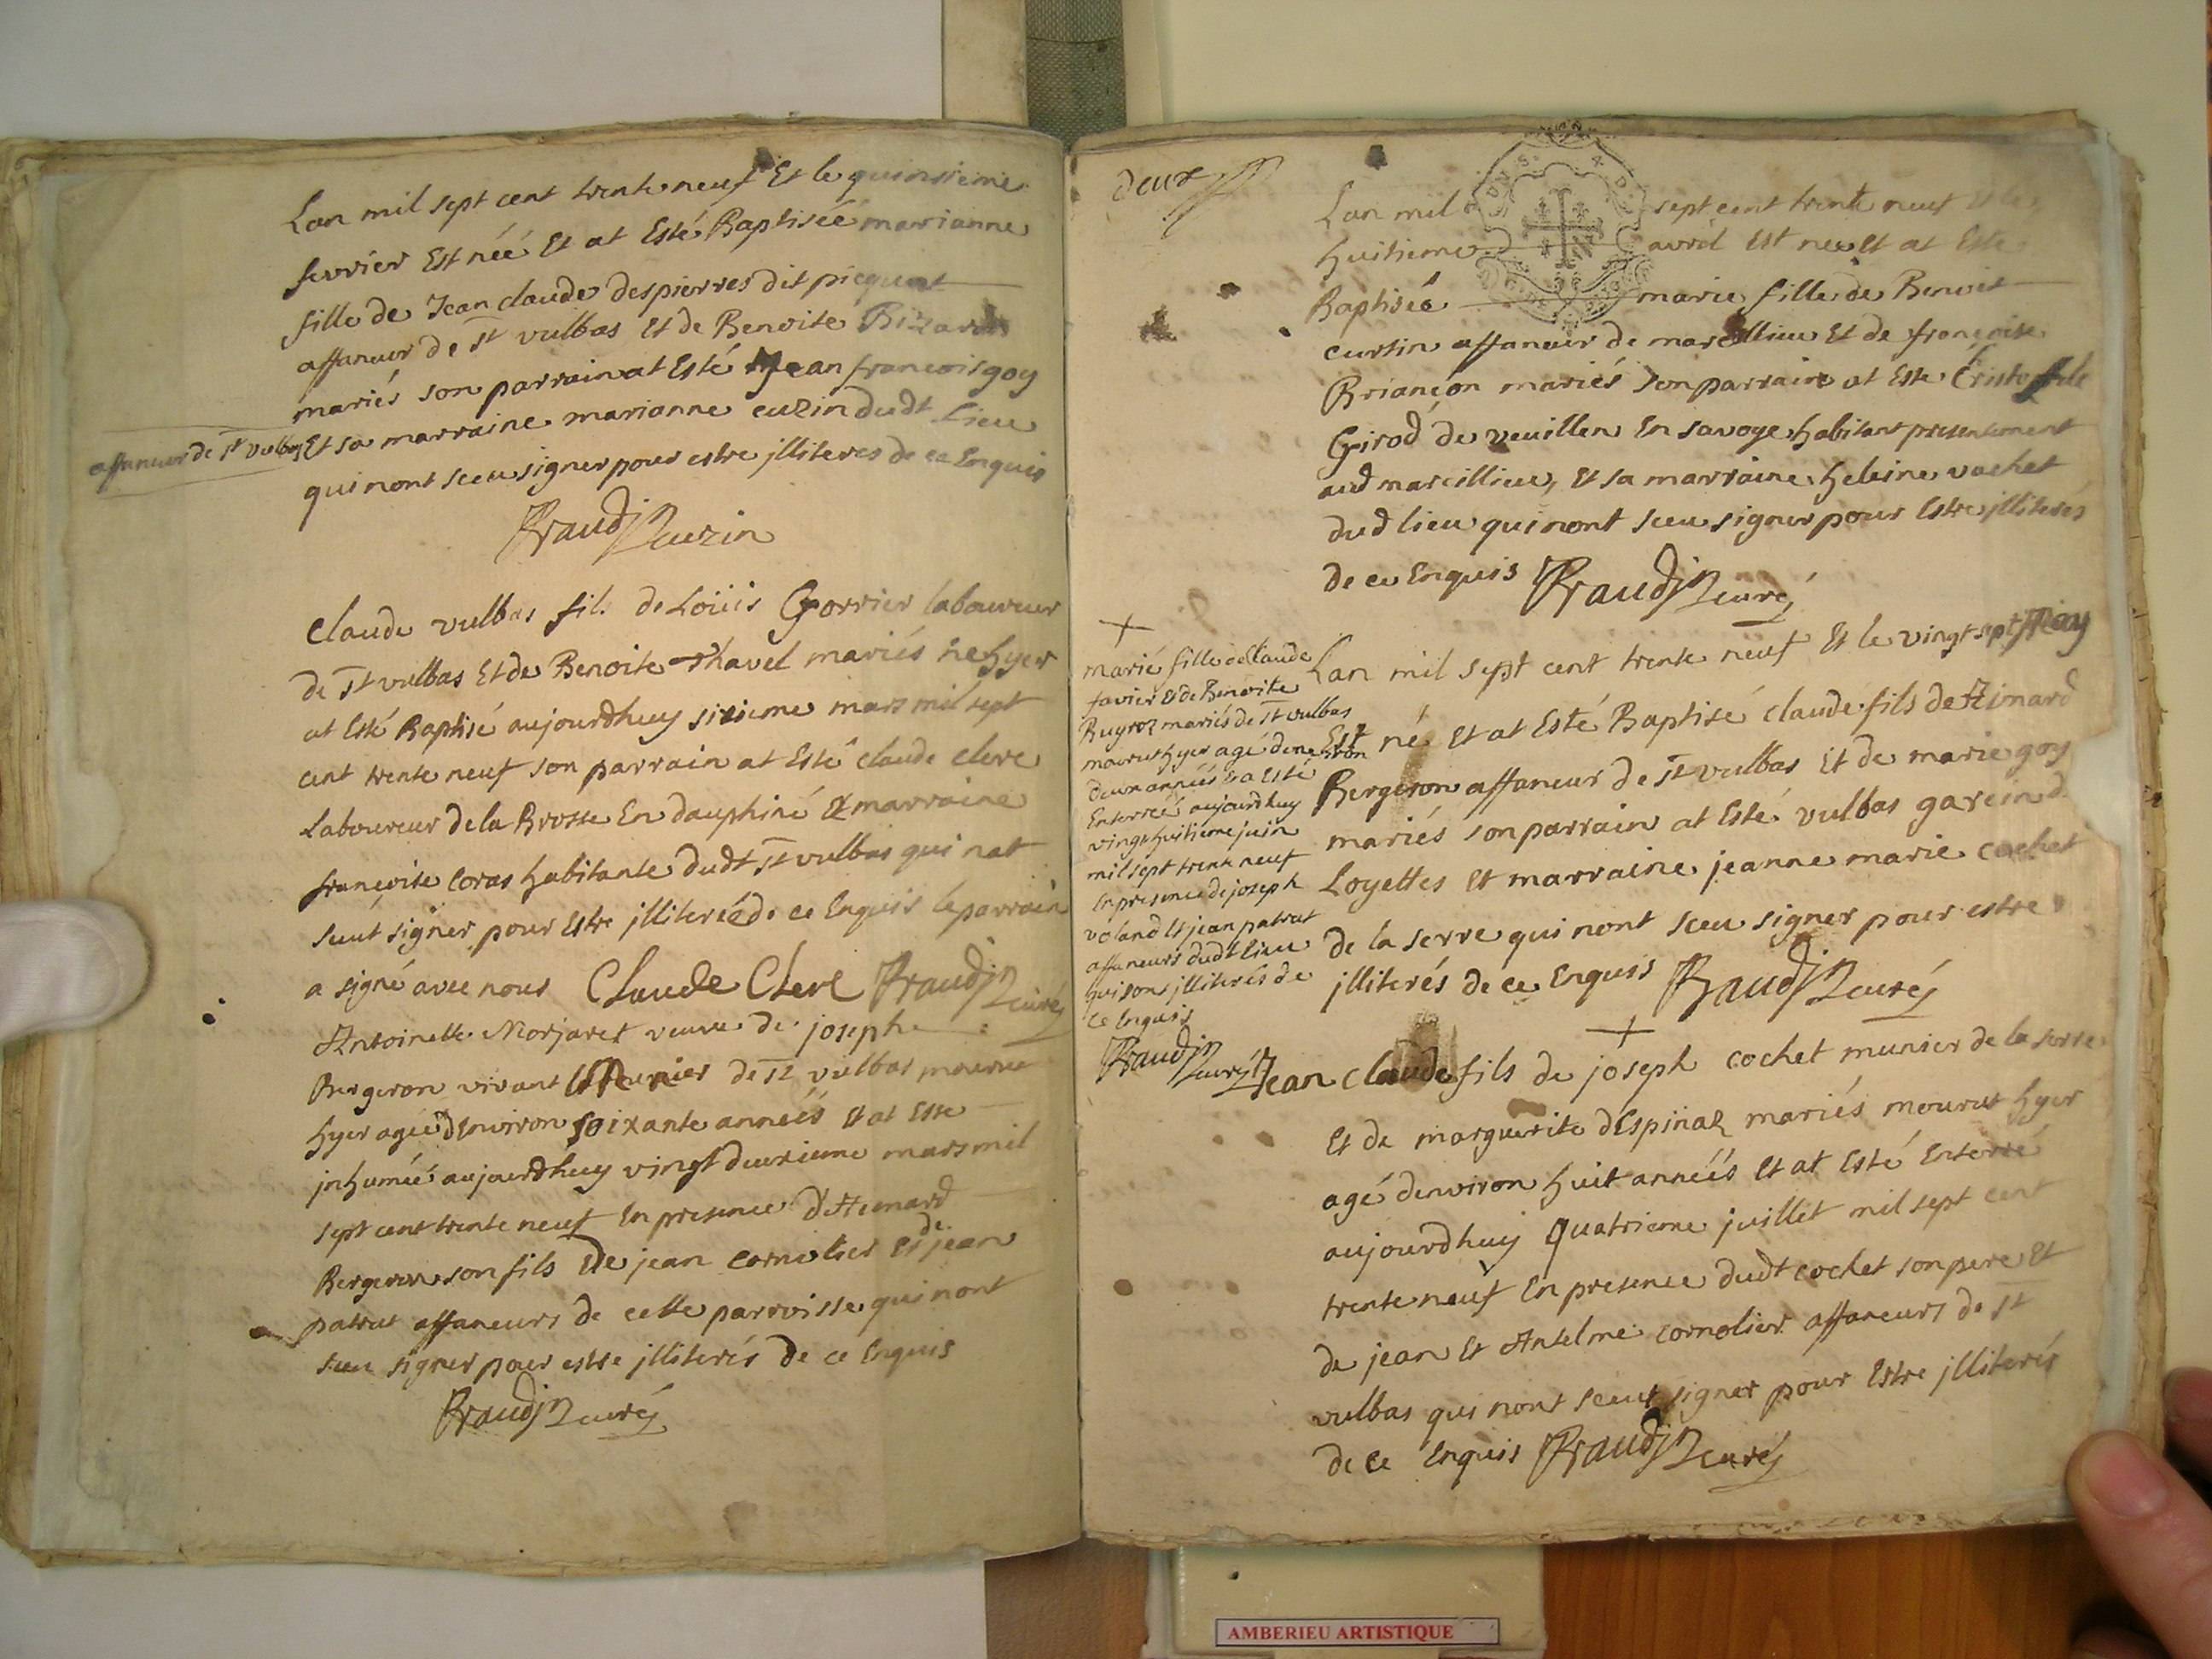 Lan mil sept cent trente neuf Et le quinsieme
fevrier Est néé Et at Esté Baptiséé marianne
fille de Jean claude despierres dit picquat
affaneur de st vulbas Et de Benoite
mariés son parrain at Esté Jean francois goy
affaneur de st vulbas
Et sa marraine marianne cuzin dudt Lieu
qui nont sceu signer pour estre jlliteres de ce Enquis
Braud curé
claude vulbas fils de Loüis Gorrier laboureur
de st vulbas Et de Benoite Thavel mariés né hyer
at Esté Baptisé aujourdhuy sixieme mars mil sept
cent trente neuf son parrain at Esté claude clerc
Laboureur de la Brosse En dauphiné Et marraine
françoise coras habitante dudt st vulbas qui nat
sceut signer pour Estre jlliteréé de ce Enquis le parrain
a signé avec nous Claude Clerc Braud curé
Antoinette Morjaret veuve de joseph
Bergeron vivant de st vulbas mourut
hyer agéé denviron soixante annéés Et at Esté
jnhuméé aujourdhuy vingt deuxieme mars mil
sept cent trente neuf En presence
Bergeron son fils De jean cornolier Et de jean
patrut affaneurs de cette parroisse qui nont
sceu signer pour estre jlliterés de ce Enquis
Braud curé
deux
Lan mil sept cent trente neuf Et le
huitieme avril Est neé Et at Esté
Baptiséé marie fille de Benoit
curtin affaneur de marcillieu Et de françoise
Briançon mariés son parrain at Esté Cristoffle
Girod de veuillen En savoye habitant presentement
aud marcillieu, Et sa marraine heleine vachet
dud lieu qui nont sceu signer pour Estre jlliterés
de ce Enquis Braud curé
marie fille de claude
favier Et de Benoite
Buyroz mariés de st vulbas
mourut hyer agé denviron
deux annéés Et a Esté
Enterréé aujourdhuy
vingt huitieme juin
mil sept trente neuf
En presence de joseph
voland Et jean patrut
affaneurs dudt Lieu
qui sont jlliterés de
ce Enquis
Braud curé
Lan mil sept cent trente neuf Et le vingt sept May
Est né Et at Esté Baptisé claude fils de
Bergeron affaneur de st vulbas Et de marie goy
mariés son parrain at Esté vulbas garcin d
Loyettes Et marraine jeanne marie cochet
de la serre qui nont sceu signer pour estre
jlliterés de ce Enquis Braud curé
Jean claude fils de joseph cochet munier de la serre
Et de marguerite dEspinaz mariés mourut hyer
agé denviron huit annéés Et at Esté Enterré
aujourdhuy quatrieme juillet mil sept cent
trente neuf En presence dudt cochet son pere Et
de jean Et Antelme cornolier affaneurs de st
vulbas qui nont sceut signer pour Estre jlliterés
de ce Enquis Braud curé
AMBERIEU ARTISTIQUE